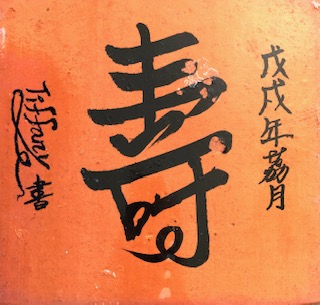 戊戌年荔月
壽
Tiffany 喜